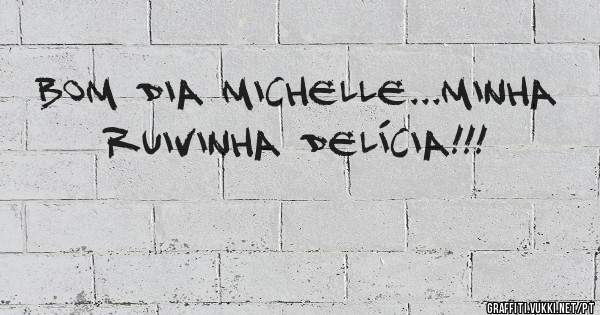 BOM DIA MICHELLE...MINHA
RUIVINHA DELÍCIA!!!
GRAFFITI.VUKKI.NET/PT